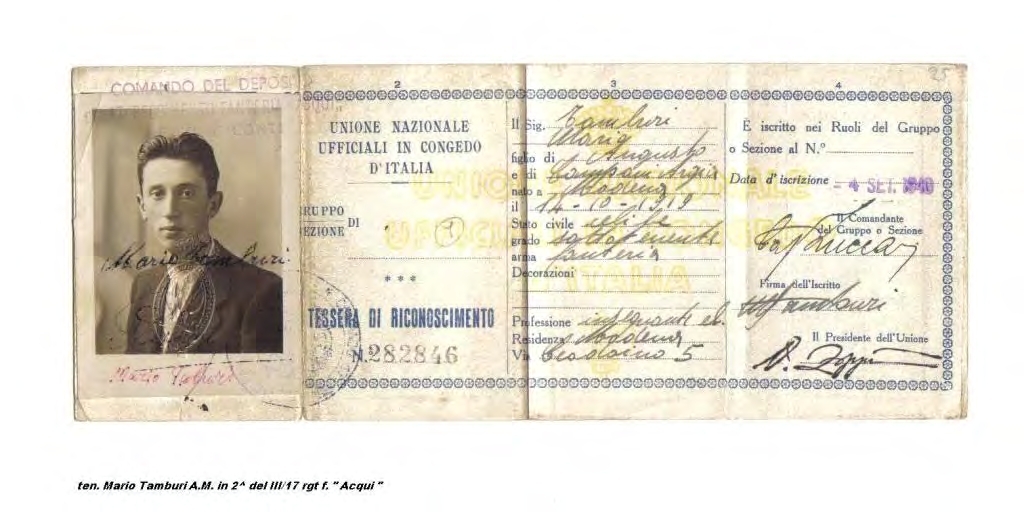 COMANDO DEL DEPOS
Mario Tamburi
2
UNIONE NAZIONALE
UFFICIALI IN CONGEDO
D'ITALIA
RUPPO
EZIONE
DI
* * *
TESSERA DI RICONOSCIMENTO
N. 282846
3
Il Sig. Tamburi
Mario
figlio di Augusto
e di
nato a Modena
il 14-10-1919
Stato civile celibe
grado sottotenente
arma fanteria
Decorazioni
Professione insegnante el.
Residenza Modena
Via 5
4
25
È iscritto nei Ruoli del Gruppo
o Sezione al N.º
Data d'iscrizione - 4 SET. 1940
Il Comandante
del Gruppo o Sezione
Firma dell'Iscritto
MTamburi
Il Presidente dell'Unione
ten. Mario Tamburi A.M. in 2^ del III/17 rgt f. " Acqui "